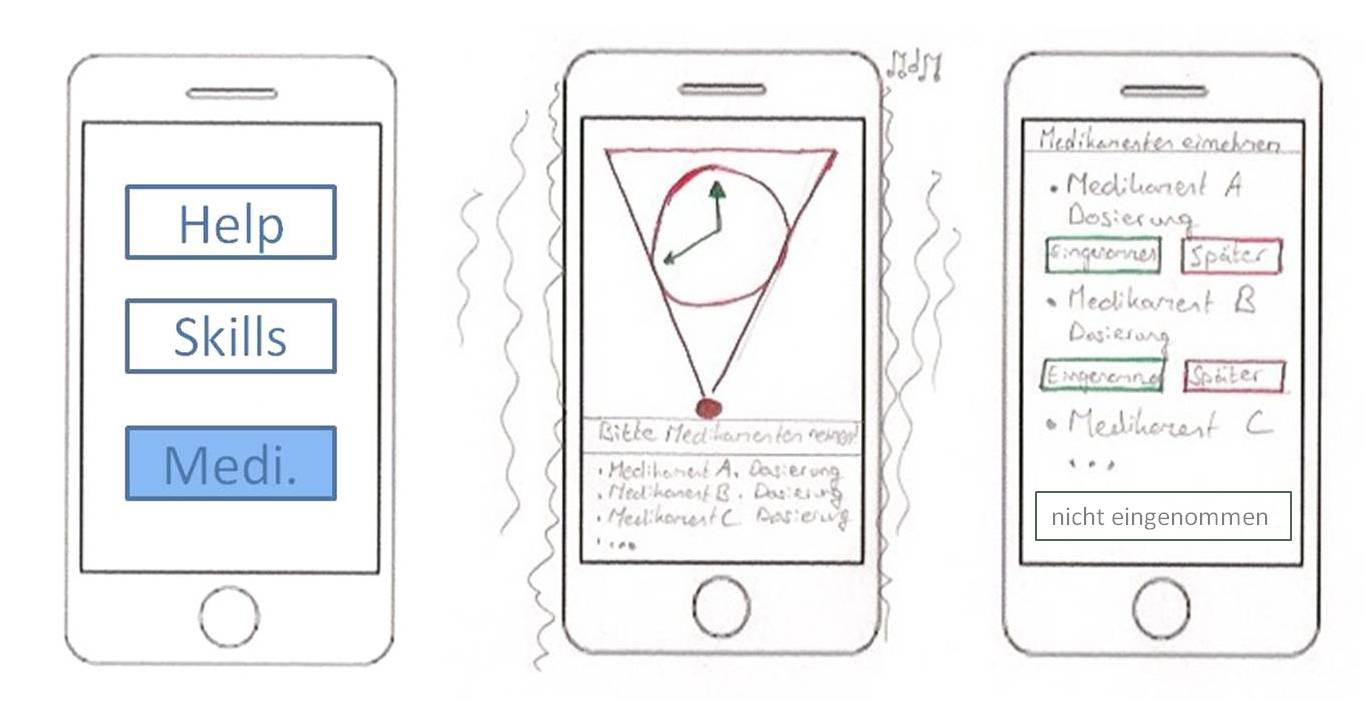 Help
Skills
Medi.
Bitte Medikamenten nehmen!
• Medikament A. Dosierung
• Medikament B. Dosierung
• Medikament C Dosierung
• ...
Medikamenten einnehmen
• Medikament A
Dosierung
Eingenommen Später
• Medikament B
Dosierung
Eingenommen Später
• Medikament C
...
nicht eingenommen